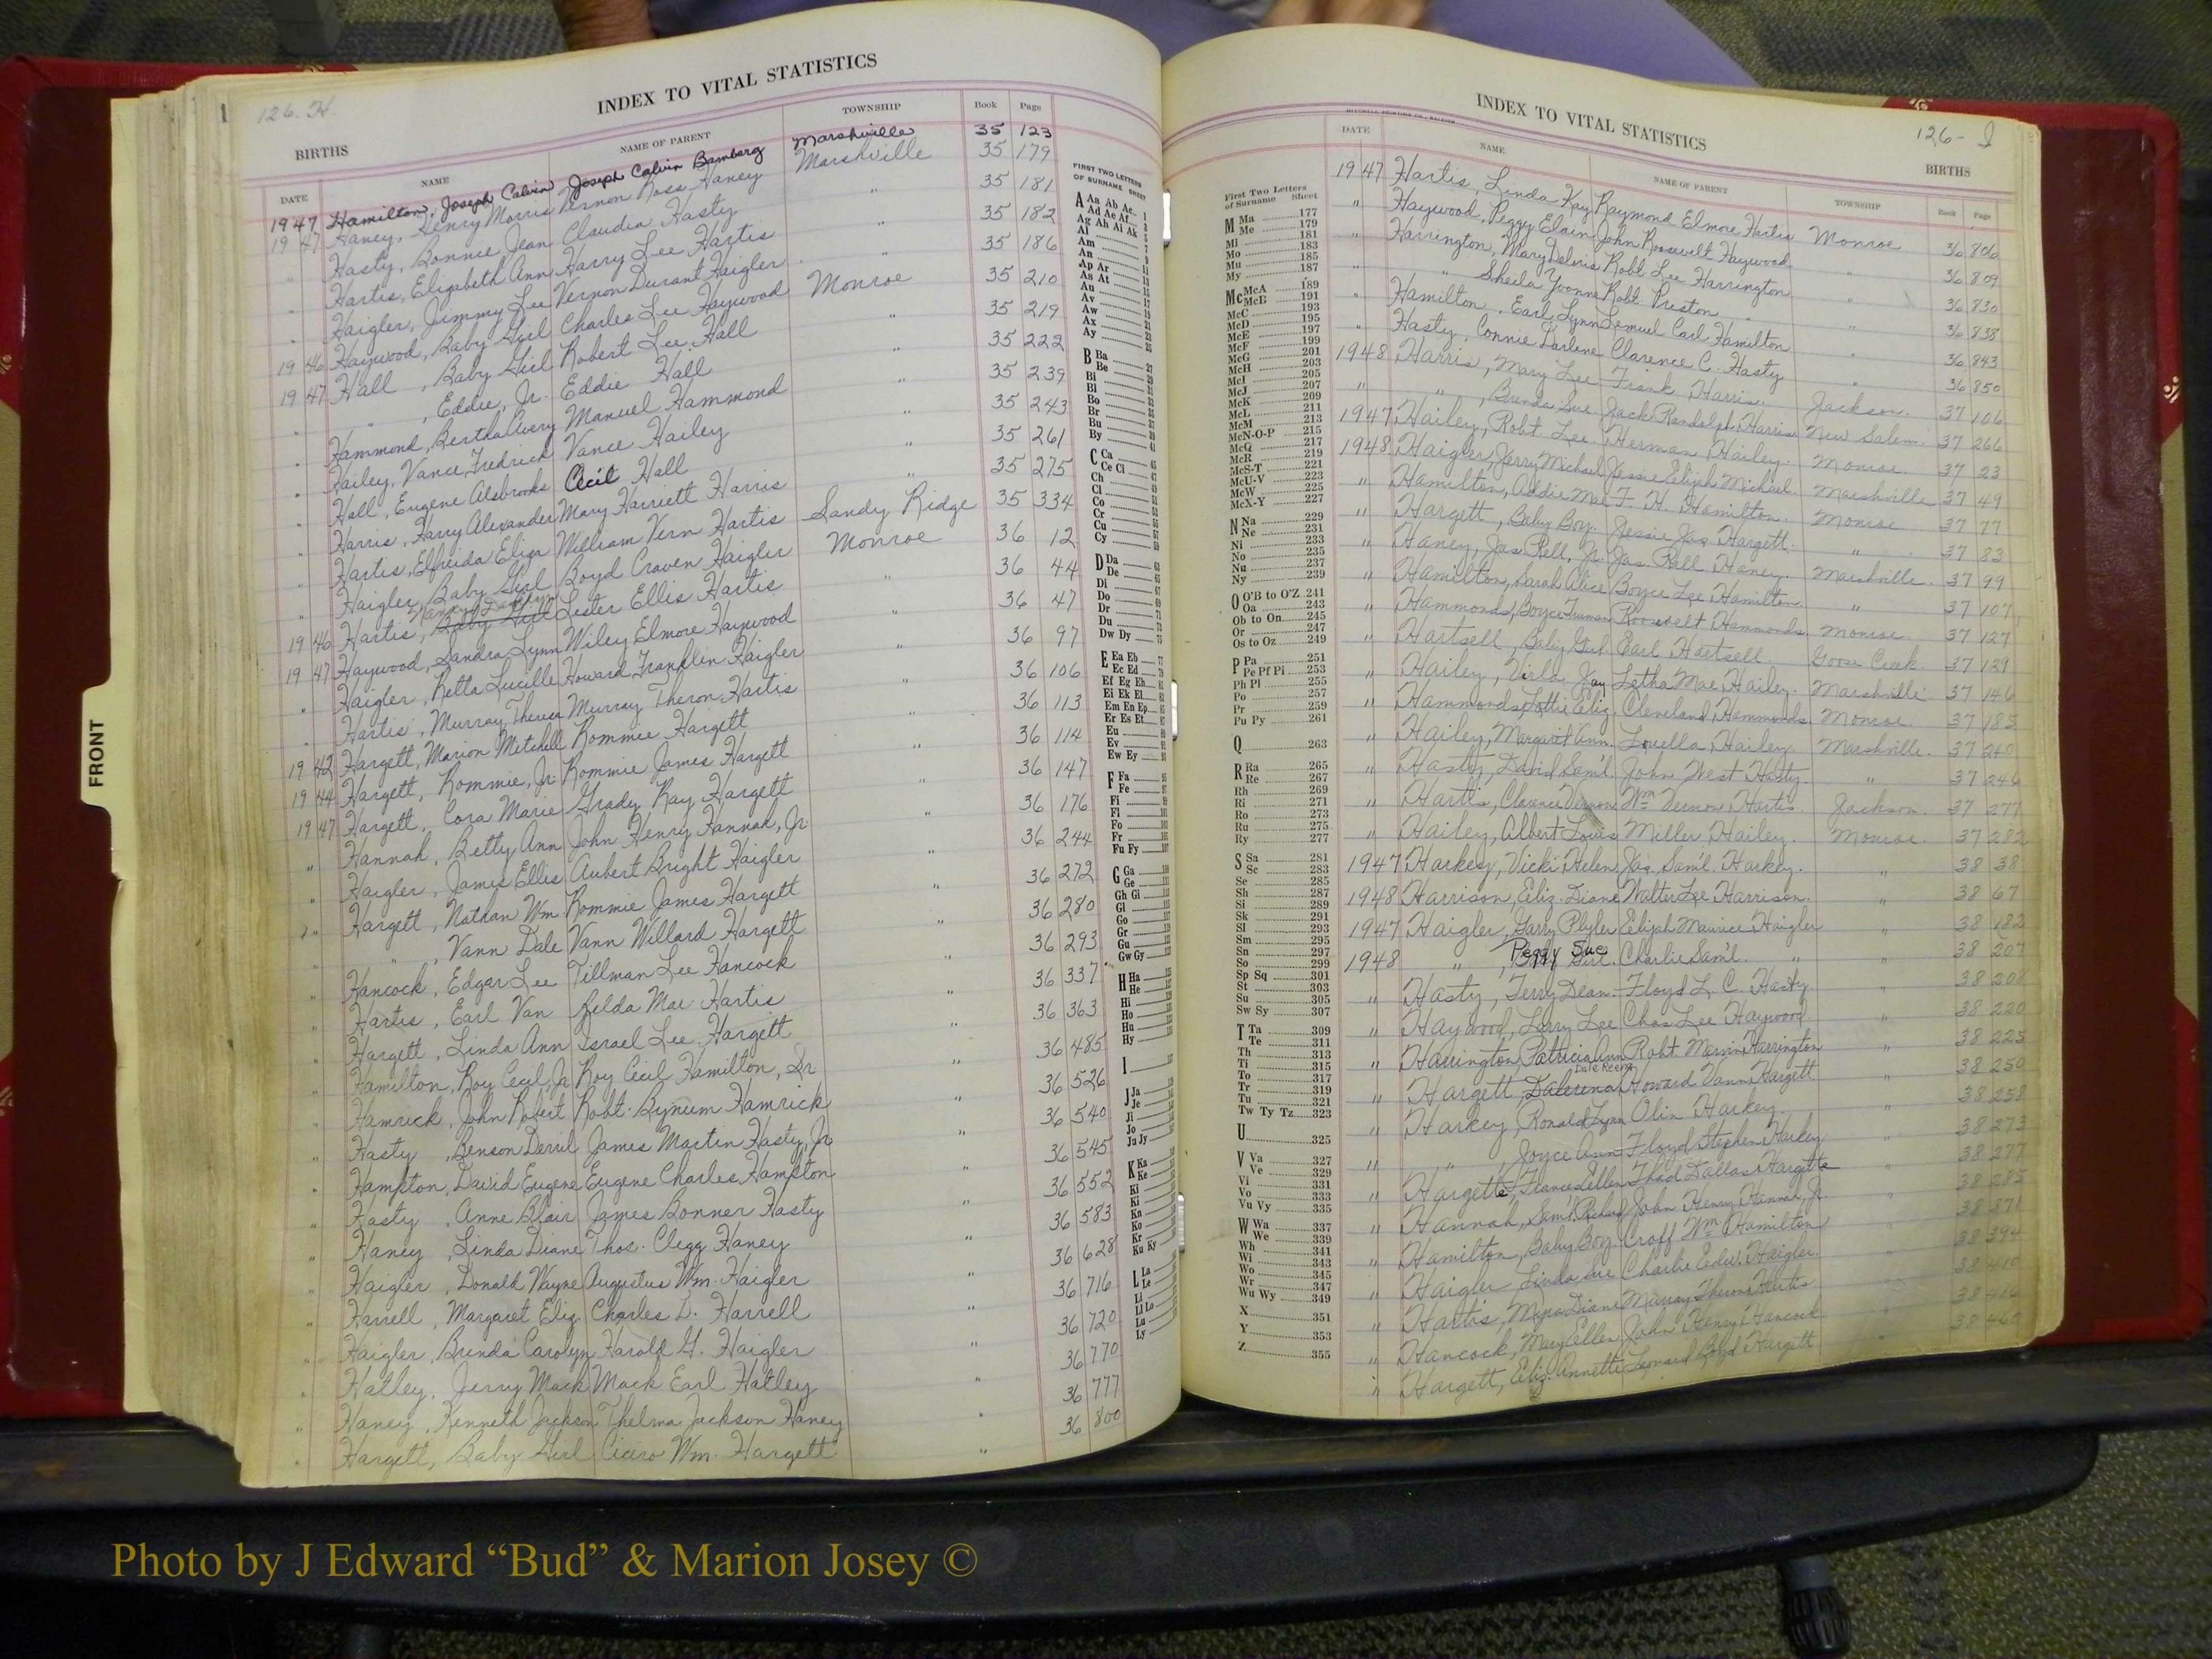 126-H.
INDEX TO VITAL STATISTICS
BIRTHS
DATE NAME NAME OF PARENT TOWNSHIP Book Page
1947 Hamilton, Joseph Calvin Joseph Calvin Bamberg Marshville 35 123
1947 Haney, Henry Morris Vernon Ross Haney Marshville 35 179
" Hasty, Bonnie Jean Claudia Hasty " 35 181
" Hartis, Elizabeth Ann Harry Lee Hartis " 35 182
" Haigler, Jimmy Lee Vernon Durant Haigler " 35 186
1946 Haywood, Baby Girl Charles Lee Haywood Monroe 35 210
1947 Hall, Baby Girl Robert Lee Hall " 35 219
" " , Eddie, Jr. Eddie Hall " 35 222
" Hammond, Bertha Avery Manuel Hammond " 35 239
" Hailey, Vance Fredrick Vance Hailey " 35 243
" Hall, Eugene Alsbrooks Cecil Hall " 35 261
" Harris, Harry Alexander Mary Harriett Harris " 35 275
" Hartis, Elfreida Eliza William Vern Hartis Sandy Ridge 35 334
" Haigler, Baby Girl Boyd Craven Haigler Monroe 36 12
1946 Hartis, Baby Girl Lester Ellis Hartis " 36 44
1947 Haywood, Sandra Lynn Wiley Elmore Haywood " 36 47
" Haigler, Retta Lucille Howard Franklin Haigler " 36 97
" Hartis, Murray Theresa Murray Theron Hartis " 36 106
1942 Hargett, Marion Mitchell Rommie Hargett " 36 113
1944 Hargett, Rommie, Jr. Rommie James Hargett " 36 114
1947 Hargett, Cora Marie Grady Ray Hargett " 36 147
" Hannah, Betty Ann John Henry Hannah, Jr. " 36 176
" Haigler, James Ellis Aubert Bright Haigler " 36 244
" Hargett, Nathan Wm. Rommie James Hargett " 36 272
" " , Vann Dale Vann Willard Hargett " 36 280
" Hancock, Edgar Lee Tillman Lee Hancock " 36 293
" Hartis, Earl Van Zelda Mae Hartis " 36 337
" Hargett, Linda Ann Israel Lee Hargett " 36 363
" Hamilton, Roy Cecil, Jr. Roy Cecil Hamilton, Sr. " 36 485
" Hamrick, John Robert Robt. Bynum Hamrick " 36 526
" Hasty, Benson Derril James Martin Hasty, Jr. " 36 540
" Hampton, David Eugene Eugene Charles Hampton " 36 545
" Hasty, Anne Blair James Bonner Hasty " 36 552
" Haney, Linda Diane Thos. Clegg Haney " 36 583
" Haigler, Donald Wayne Augustus Wm. Haigler " 36 628
" Harrell, Margaret Eliz. Charles D. Harrell " 36 716
" Haigler, Brenda Carolyn Harold G. Haigler " 36 720
" Hatley, Jerry Mack Mack Earl Hatley " 36 770
" Haney, Kenneth Jackson Thelma Jackson Haney " 36 777
" Hargett, Baby Girl Cicero Wm. Hargett " 36 800
FRONT
FIRST TWO LETTERS
OF SURNAME SHEET
A Aa Ab Ac
Ad Ae Af
Ag Ah Ai Ak
Al
Am
An
Ap Ar
As At
Au
Av
Aw
Ax
Ay
B Ba
Be
Bi
Bl
Bo
Br
Bu
By
C Ca
Ce Ci
Ch
Cl
Co
Cr
Cu
Cy
D Da
De
Di
Do
Dr
Du
Dw Dy
E Ea Eb
Ec Ed
Ef Eg Eh
Ei Ek El
Em En Ep
Er Es Et
Eu
Ev
Ew Ey
F Fa
Fe
Fi
Fl
Fo
Fr
Fu Fy
G Ga
Ge
Gh Gi
Gl
Go
Gr
Gu
Gw Gy
H Ha
He
Hi
Ho
Hu
Hy
I
J Ja
Je
Ji
Jo
Ju Jy
K Ka
Ke
Ki
Kl
Kn
Ko
Kr
Ku Ky
L La
Le
Li
Ll Lo
Lu
Ly
INDEX TO VITAL STATISTICS
126-I
BIRTHS
First Two Letters
of Surname Sheet
M Ma 177
Me 179
Mi 181
Mo 183
Mu 185
My 187
Mc McA 189
McB 191
McC 193
McD 195
McE 197
McF 199
McG 201
McH 203
McI 205
McJ 207
McK 209
McL 211
McM 213
McN-O-P 215
McQ 217
McR 219
McS-T 221
McU-V 223
McW 225
McX-Y 227
N Na 229
Ne 231
Ni 233
No 235
Nu 237
Ny 239
O O'B to O'Z 241
Oa 243
Ob to On 245
Or 247
Os to Oz 249
P Pa 251
Pe Pf Pi 253
Ph Pl 255
Po 257
Pr 259
Pu Py 261
Q 263
R Ra 265
Re 267
Rh 269
Ri 271
Ro 273
Ru 275
Ry 277
S Sa 281
Sc 283
Se 285
Sh 287
Si 289
Sk 291
Sl 293
Sm 295
Sn 297
So 299
Sp Sq 301
St 303
Su 305
Sw Sy 307
T Ta 309
Te 311
Th 313
Ti 315
To 317
Tr 319
Tu 321
Tw Ty Tz 323
U 325
V Va 327
Ve 329
Vi 331
Vo 333
Vu Vy 335
W Wa 337
We 339
Wh 341
Wi 343
Wo 345
Wr 347
Wu Wy 349
X 351
Y 353
Z 355
DATE NAME NAME OF PARENT TOWNSHIP Book Page
1947 Hartis, Linda Kay Raymond Elmore Hartis Monroe 36 806
" Haywood, Peggy Elain John Roosevelt Haywood " 36 809
" Harrington, Mary Deloris Robt. Lee Harrington " 36 830
" " Sheila Yvonne Robt. Preston " " 36 838
" Hamilton, Earl Lynn Lemuel Carl Hamilton " 36 843
" Hasty, Connie Darlene Clarence C. Hasty " 36 850
1948 Harris, Mary Lee Frank Harris. Jackson. 37 106
" " , Brenda Sue Jack Randolph Harris New Salem. 37 266
1947 Hailey, Robt. Lee Herman Hailey. Monroe. 37 23
1948 Haigler, Jerry Michael Jessie Elijah Michael. Marshville 37 49
" Hamilton, Addie Mae F. H. Hamilton. Monroe 37 77
" Hargett, Baby Boy. Jessie Jas. Hargett. " 37 83
" Haney, Jas. Rell, Jr. Jas. Rell Haney. Marshville. 37 99
" Hamilton, Sarah Alice Boyce Lee Hamilton. " 37 107
" Hammonds, Boyce Truman Roosevelt Hammonds. Monroe 37 127
" Hartsell, Baby Girl Earl Hartsell. Goose Creek. 37 129
" Hailey, Virla Jay Letha Mae Hailey. Marshville 37 146
" Hammonds, Lottie Eliz. Cleveland Hammonds. Monroe. 37 185
" Hailey, Margaret Ann. Louella Hailey. Marshville. 37 240
" Hasty, David Sam'l. John West Hasty. " 37 246
" Hartis, Clarence Vernon Wm. Vernon Hartis. Jackson. 37 277
" Hailey, Albert Louis Miller Hailey. Monroe. 37 282
1947 Harkey, Vicki Helen Jas. Sam'l. Harkey. " 38 38
1948 Harrison, Eliz. Diane Walter Lee Harrison. " 38 67
1947 Haigler, Garry Plyler Elijah Maurice Haigler " 38 182
1948 " , Peggy Sue Baby Girl. Charlie Sam'l. " " 38 207
" Hasty, Jerry Dean. Floyd L. C. Hasty. " 38 208
" Haywood, Larry Lee Chas Lee Haywood. " 38 220
" Harrington, Patricia Ann Robt. Marvin Harrington " 38 225
" Hargett, Dalerena Dale Reena Howard Vann Hargett. " 38 250
" Harkey, Ronald Lynn Olin Harkey. " 38 258
" " , Joyce Ann Floyd Stephen Harkey " 38 273
" Hargette, Frances Ellen Thad Dallas Hargette " 38 277
" Hannah, Sam'l. Richard John Henry Hannah, Jr. 38 285
" Hamilton, Baby Boy. Croff Wm. Hamilton 38 371
" Haigler Linda Sue Charlie Edw. Haigler. 38 394
" Hartis, Myra Diane Murray Theron Hartis 38 410
" Hancock, Mary Ellen John Henry Hancock 38 416
" Hargett, Eliz. Annette Leonard Boyd Hargett 38 460
Photo by J Edward “Bud” & Marion Josey ©